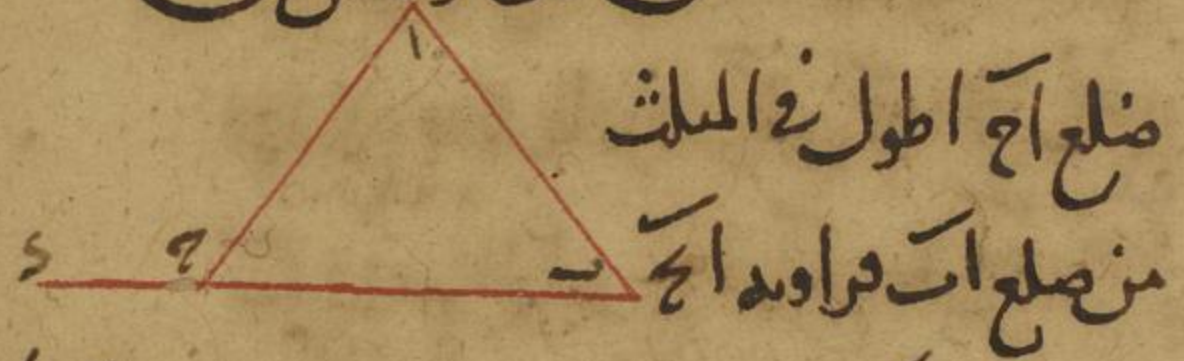 ضلع اح اطول فى المثلث
من ضلع اب فزاويه اح
ا
ح
د
ب